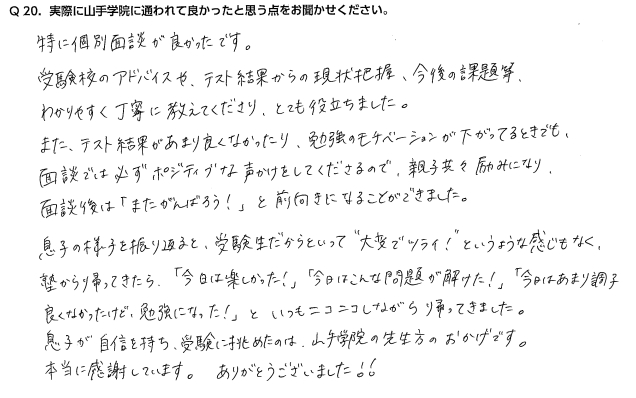 Q 20．実際に山手学院に通われて良かったと思う点をお聞かせください。
特に個別面談が良かったです。
受験校のアドバイスや、テスト結果からの現状把握、今後の課題等、
わかりやすく丁寧に教えてくださり、とても役立ちました。
また、テスト結果があまり良くなかったり、勉強のモチベーションが下がってるときでも、
面談では必ずポジティブな声かけをしてくださるので、親子共々励みになり、
面談後は「またがんばろう！」と前向きになることができました。
息子の様子を振り返ると、受験生だからといって“大変でツライ！”というような感じもなく、
塾から帰ってきたら、「今日は楽しかった！」「今日はこんな問題が解けた！」「今日はあまり調子
良くなかったけど、勉強になった！」といつもニコニコしながら帰ってきました。
息子が自信を持ち、受験に挑めたのは、山手学院の先生方のおかげです。
本当に感謝しています。 ありがとうございました!!